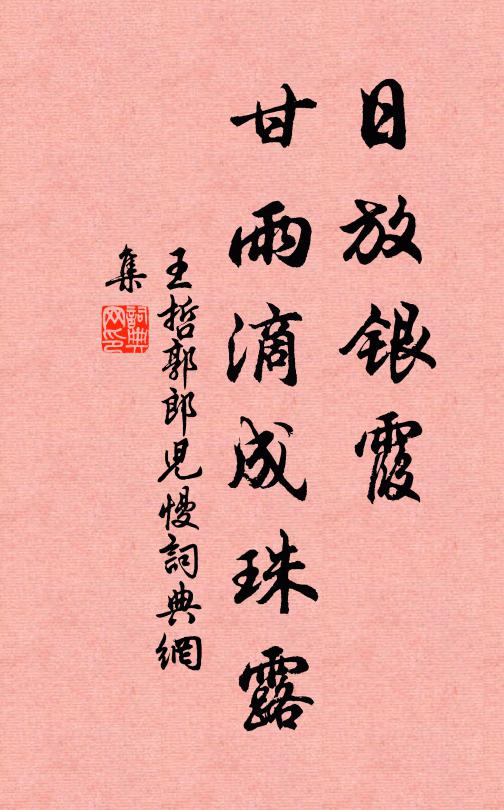 日放銀霞
甘雨滴成珠露
王哲郭郎兒慢詞典網
集
詞典
网印